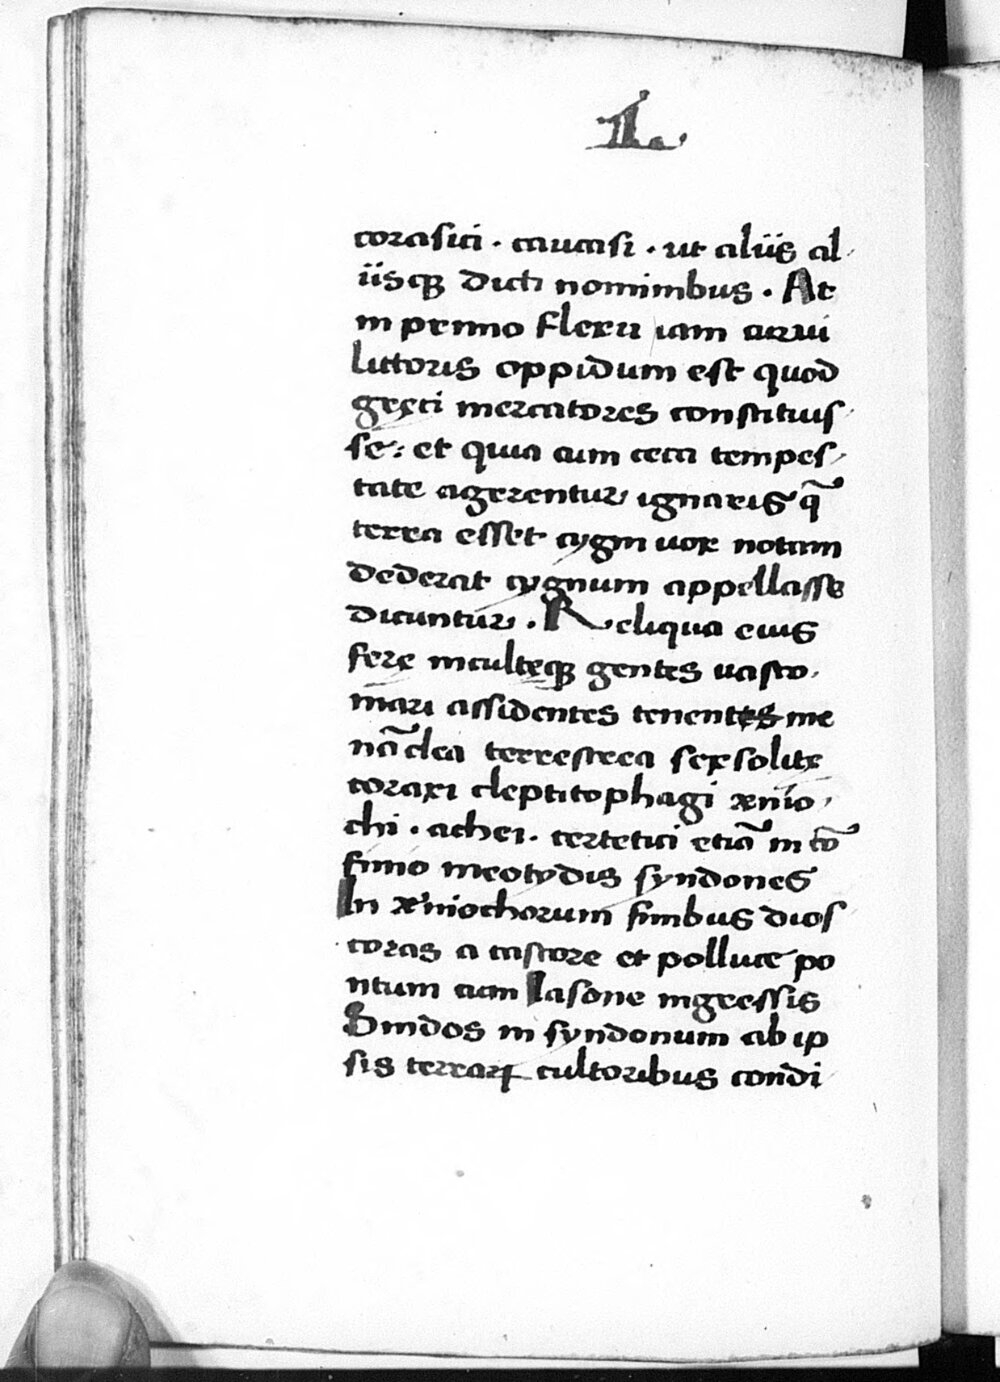 .I.
corasici · caucasi · ut aliis al
iisq; dicti nominibus · At
in primo flexu iam curui
littoris oppidum est quod
gręci mercatores constituis
se: et quia cum ceca tempes
tate agerentur ignaris q̃
terra esset cygni uox notam
dederat cygnum appellasse
dicuntur · Reliqua eius
ferę incultęq; gentes uasto
mari assidentes tenentes me
nãclea terrestrea sexsolitę
coraxi cleptitophagi ænio
chi · achei · certetici etiã in cõ
finio meotydis syndones
In æniochorum finibus dios
coras a castore et polluce po
ntum cum Iasone ingressis
Sindos in syndonum ab ip
sis terraꝝ cultoribus condi